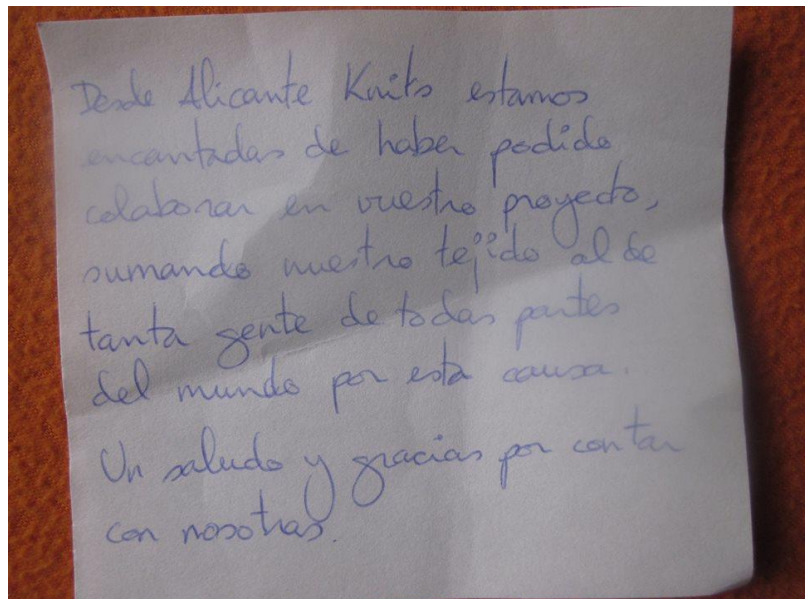 Desde Alicante Knits estamos
encantadas de haber podido
colaborar en vuestro proyecto,
sumando nuestro tejido al de
tanta gente de todas partes
del mundo por esta causa.
Un saludo y gracias por contar
con nosotras.